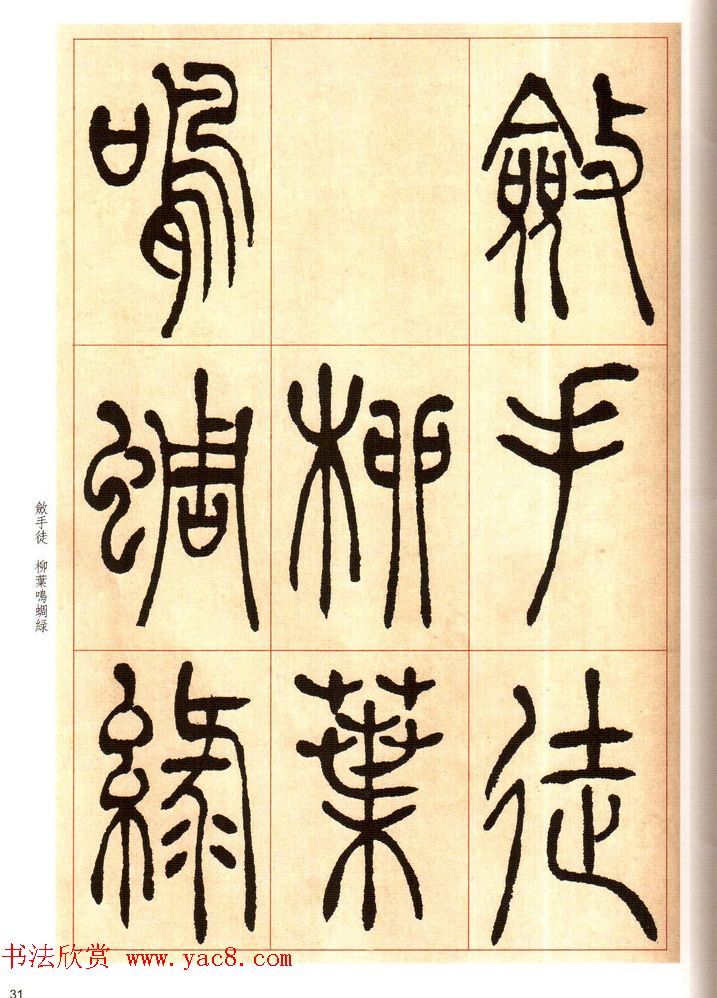 斂手徒
柳葉
鳴蜩綠
斂手徒　柳葉鳴蜩綠
书法欣赏 www.yac8.com
31